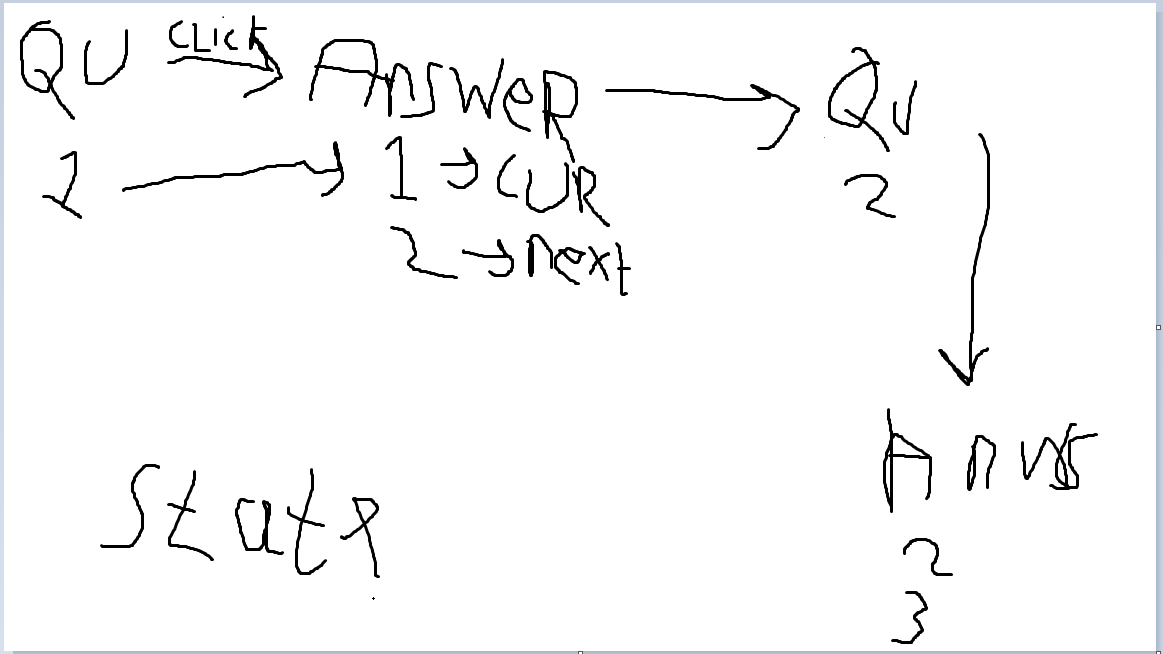 QU CLICK ANSWER QU
1 1 → CUR 2
2 → next
State
2
3